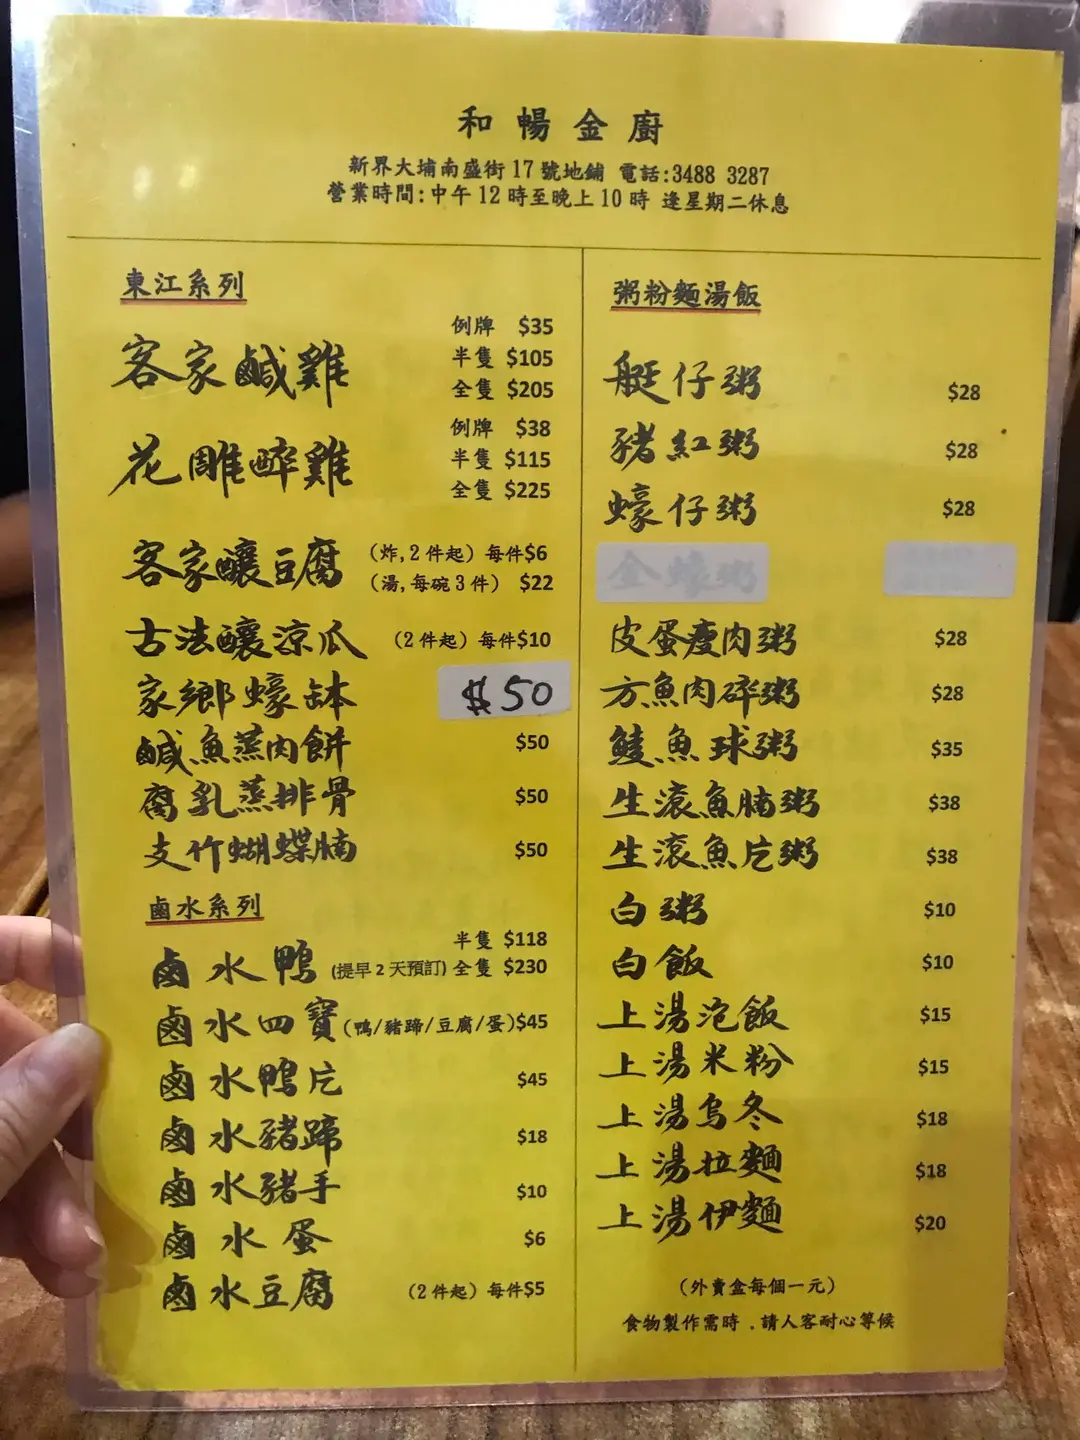 和暢金廚
新界大埔南盛街17號地鋪 電話:3488 3287
營業時間:中午12時至晚上10時 逢星期二休息
東江系列
客家鹹雞
例牌 $35
半隻 $105
全隻 $205
花雕醉雞
例牌 $38
半隻 $115
全隻 $225
客家釀豆腐 (炸,2件起) 每件$6
(湯,每碗3件) $22
古法釀涼瓜 (2件起) 每件$10
家鄉蠔缽 $50
鹹魚蒸肉餅 $50
腐乳蒸排骨 $50
支竹蝴蝶腩 $50
鹵水系列
鹵水鴨 半隻 $118
(提早2天預訂) 全隻 $230
鹵水四寶(鴨/豬蹄/豆腐/蛋)$45
鹵水鴨片 $45
鹵水豬蹄 $18
鹵水豬手 $10
鹵水蛋 $6
鹵水豆腐 (2件起) 每件$5
粥粉麵湯飯
艇仔粥 $28
豬紅粥 $28
蠔仔粥 $28
金蠔粥
皮蛋瘦肉粥 $28
方魚肉碎粥 $28
鯪魚球粥 $35
生滾魚腩粥 $38
生滾魚片粥 $38
白粥 $10
白飯 $10
上湯泡飯 $15
上湯米粉 $15
上湯烏冬 $18
上湯拉麵 $18
上湯伊麵 $20
(外賣盒每個一元)
食物製作需時﹐請人客耐心等候